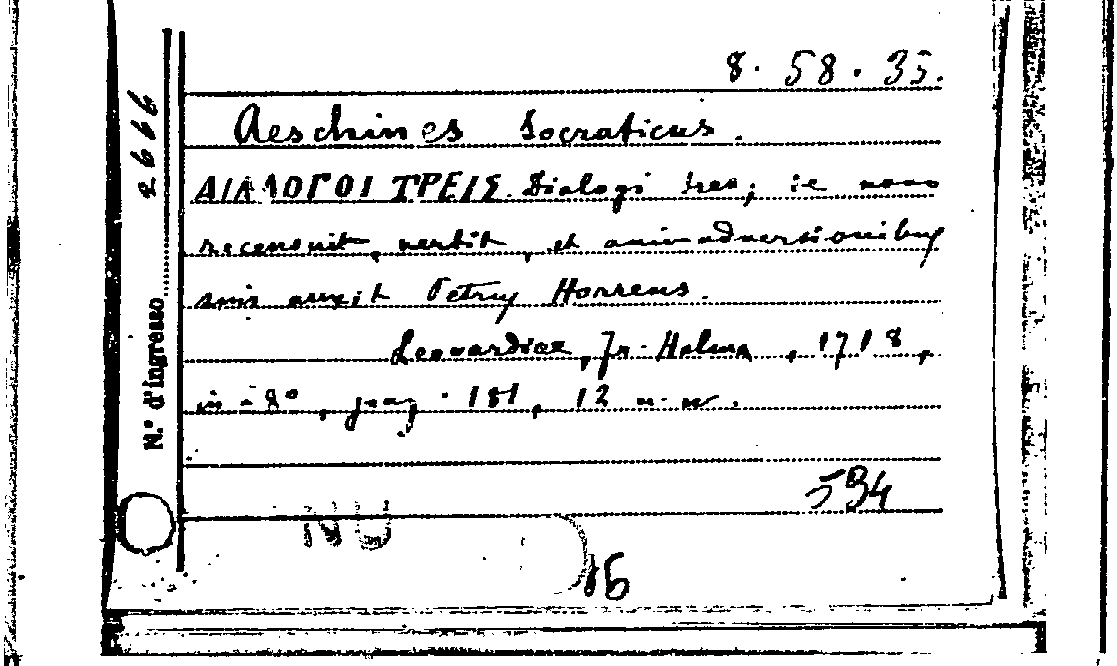 8. 58. 35.
Aeschines Socraticus.
ΔΙΑΛΟΓΟΙ ΤΡΕΙΣ. Dialogi tres; de novo
recensuit, vertit, et animadversionibus
suis auxit Petrus Horreus.
Leovardiae, Fr. Halma, 1718,
in-8°, pag. 181, 12 n. n.
594
NU
16
N.° d'ingresso 2666